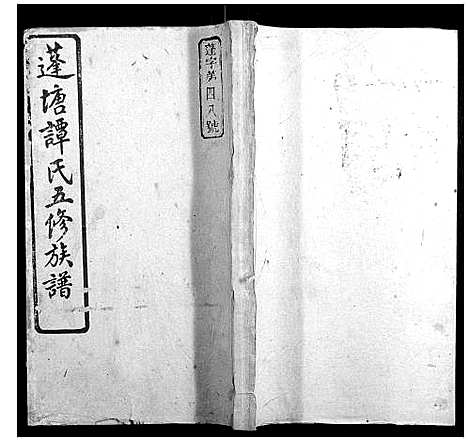 蓬塘譚氏五修族譜
蓬字第四八號